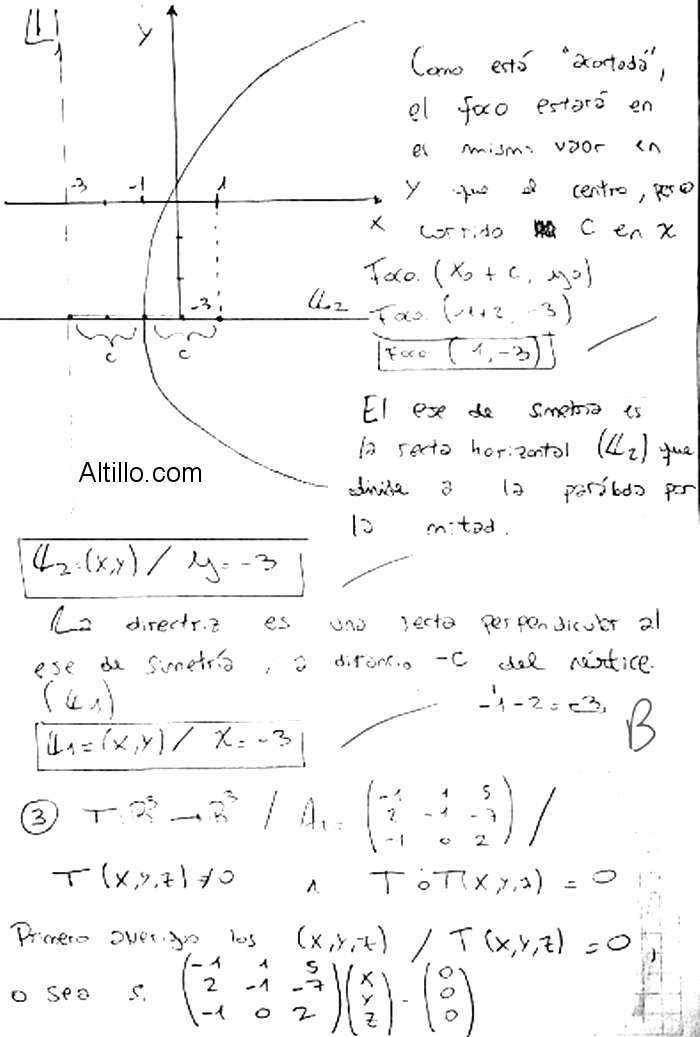 𝕃1
y
-3 -1 1
x
-3
𝕃2
c c
Como está "acortada",
el foco estará en
el mismo valor en
y que el centro, pero
corrido C en x
Foco. (X0 + C, y0)
Foco. (-1+2, -3)
Foco (1, -3)
El eje de simetría es
la recta horizontal (𝕃2) que
divide a la parábola por
la mitad.
Altillo.com
𝕃2=(x,y) / y=-3
La directriz es una recta perpendicular al
eje de simetría, a distancia -C del vértice.
(𝕃1)
-1-2=-3
𝕃1=(x,y) / x=-3
B
③ T: R³ → R³ / A_T = ( -1 1 5
2 -1 -7
-1 0 2 ) /
T(x,y,z) ≠ 0 ∧ T o T(x,y,z) = 0
Primero averiguo los (x,y,z) / T(x,y,z) = 0,
o sea si ( -1 1 5
2 -1 -7
-1 0 2 ) ( x
y
z ) = ( 0
0
0 )